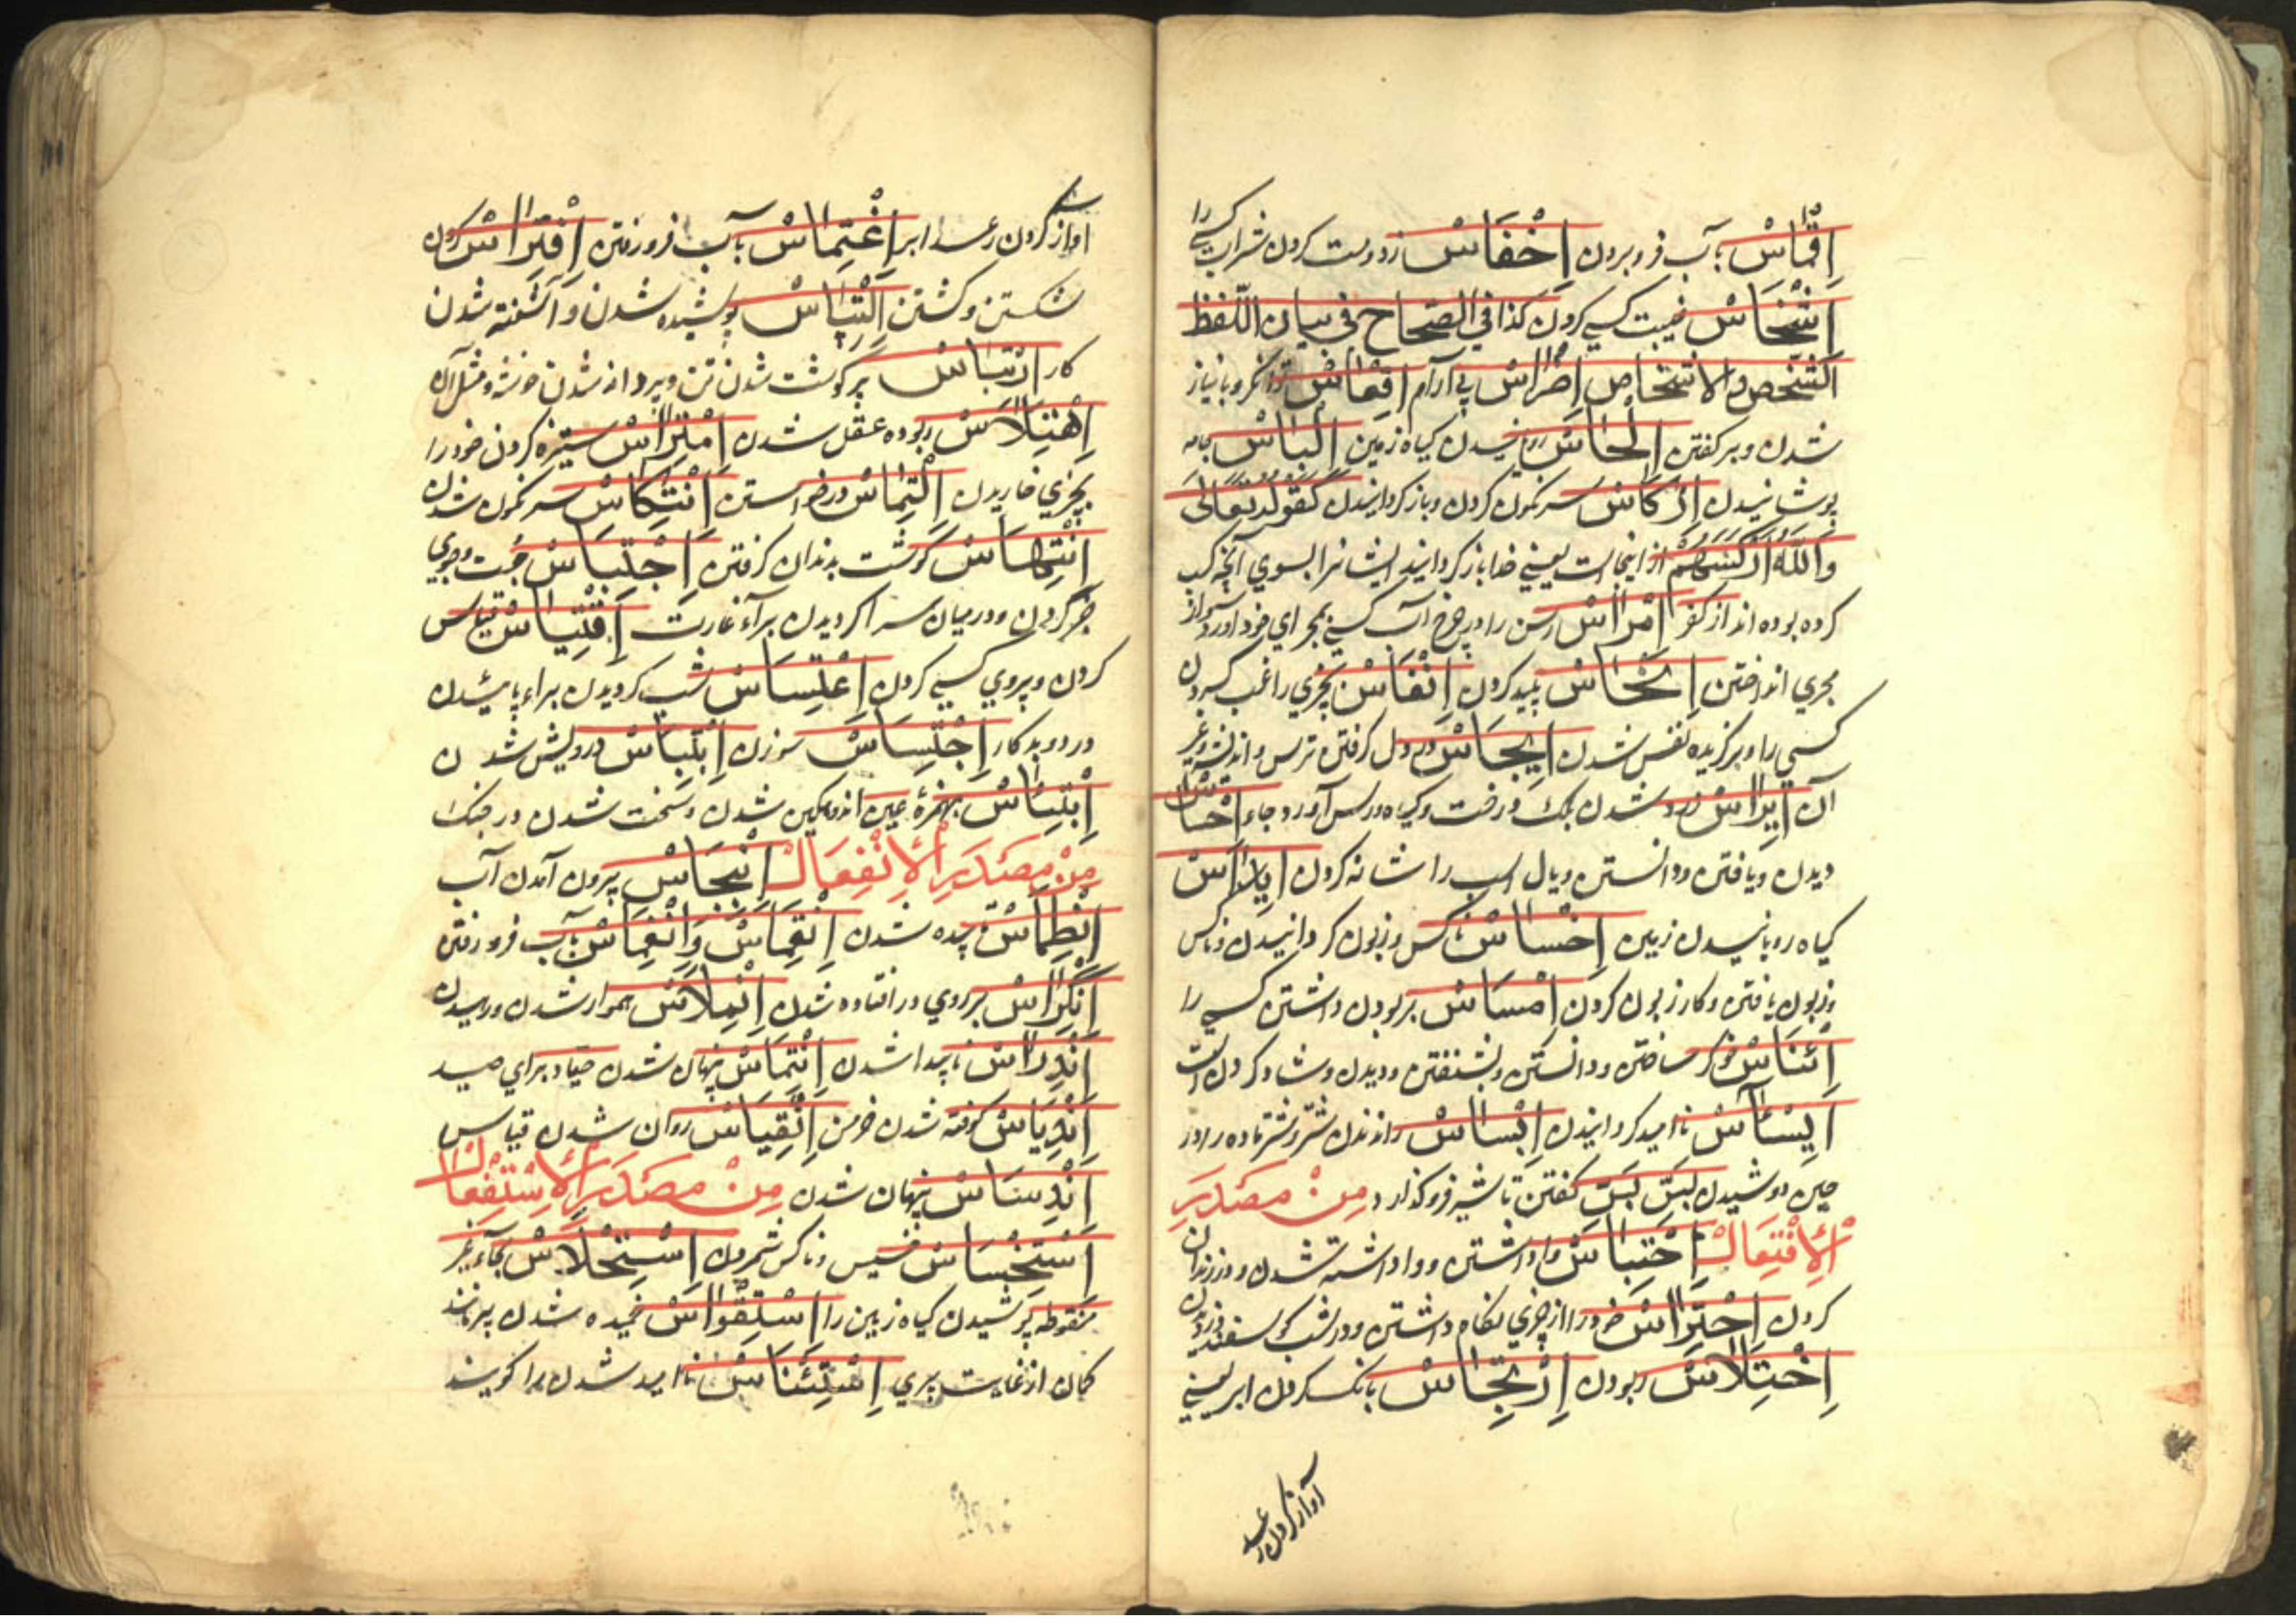 اِقْمَاسْ بآب فروبردن اِخْفَاسْ زود مست کردن شراب کسے را
اِشْخَاسْ غیبت کسے کردن کذا فی الصّحاح فی بیان اللّفظ
الشّخص والاشخاص اِضْرَاسْ بی آرام اِقْعَاسْ توانکر و بانیاز
شدن و برکفتن اِلْحَاسْ رویانیدن کیاه زمین اِلْبَاسْ جامه
پوشانیدن اِرْکَاسْ سرنکون کردن و بازکردانیدن کَقَوْلِهِ تَعَالٰی
وَاللّٰهُ اَرْکَسَهُمْ از اینجاست یعنی خدا بازکردانید ایشانرا بسوی آنچه کسب
کرده بوده اند از کفر اِمْرَاسْ رسن را در چرخ آب کسے بمجرای خود آورد و از
مجری انداختن اِنْجَاسْ پلید کردن اِنْفَاسْ بچیزی راغب کردن
کسی را و برکزیده نفس شدن اِیْجَاسْ در دل کرفتن ترس و اندیشه و غیر
آن اِیْرَاسْ زرد شدن برک درخت و کیاه ورس آورد و جاء اِحْسَاسْ
دیدن و یافتن و دانستن و یال اسب را شانه کردن
کیاه رویانیدن زمین اِخْسَاسْ ناکس و زبون کردانیدن و ناکس
و زبون یافتن و کار زبون کردن اِمْسَاسْ بربودن داشتن کسے را
اِئْنَاسْ خوکر ساختن و دانستن و بشنفتن و دیدن و شاد کردن است
اِیْسَآسْ ناامید کردانیدن اِبْسَاسْ راندن شتر و شتر ماده را در
حین دوشیدن بَسَّ بَسَّ کفتن تا شیر فروکذارد مِنْ مَصْدَرِ
الْاِفْتِعَالْ اِحْتِبَاسْ واداشتن و واداشته شدن و در زندان
کردن اِحْتِرَاسْ خود را از چیزی نکاه داشتن و در شب کوسفند دزدیدن
اِخْتِلَاسْ ربودن اِرْتِجَاسْ بانک کردن ابر یعنی
آواز کردن رعد
آواز کردن رعد ابر اِغْتِمَاسْ بآب فرورفتن اِفْتِرَاسْ کردن
شکستن و کشتن اِلْتِبَاسْ پوشیده شدن و آشفته شدن
کار اِرْتِبَاسْ پرکوشت شدن تن و پردانه شدن خوشه و مثل آن
اِهْتِلَاسْ ربوده عقل شدن اِمْتِرَاسْ ستیزه کردن خود را
بچیزی خاریدن اِلْتِمَاسْ درخواستن اِنْتِکَاسْ سرنکون شدن
اِنْتِهَاسْ کوشت بدندان کرفتن اِجْتِبَاسْ جُست و جوی
خبر کردن و درمیان سرا کردیدن برآء غارت اِقْتِیَاسْ قیاس
کردن و پیروی کسے کردن اِعْتِسَاسْ شب کردیدن براء پائیدن
دزد و بدکار اِجْتِسَاسْ سوزن اِبْتِیَاسْ درویش شدن
اِبْتِئَاسْ بهمزۀ عین اندوهکین شدن و سخت شدن در جنک
مِنْ مَصْدَرِ الْاِنْفِعَالْ اِنْبِجَاسْ بیرون آمدن آب
اِنْطِمَاسْ ناپیده شدن اِنْقِمَاسْ وَاِنْغِمَاسْ بآب فرورفتن
اِنْکِرَاسْ برروی درافتاده شدن اِنْمِلَاسْ هموار شدن و رهیدن
اِنْدِرَاسْ ناپیدا شدن اِنْتِمَاسْ پنهان شدن صیّاد برای صید
اِنْدِیَاسْ کوفته شدن خرمن اِنْقِیَاسْ روان شدن قیاس
اِنْدِسَاسْ پنهان شدن مِنْ مَصْدَرِ الْاِسْتِفْعَالْ
اِسْتِخْسَاسْ خسیس و ناکس شمردن اِسْتِحْلَاسْ بحاء غیر
منقوطه پوشیدن کیاه زمین را اِسْتِقْوَاسْ خمیده شدن پیر مانند
کمان از غایت پیری اِسْتِئْنَاسْ ناامید شدن را کویند